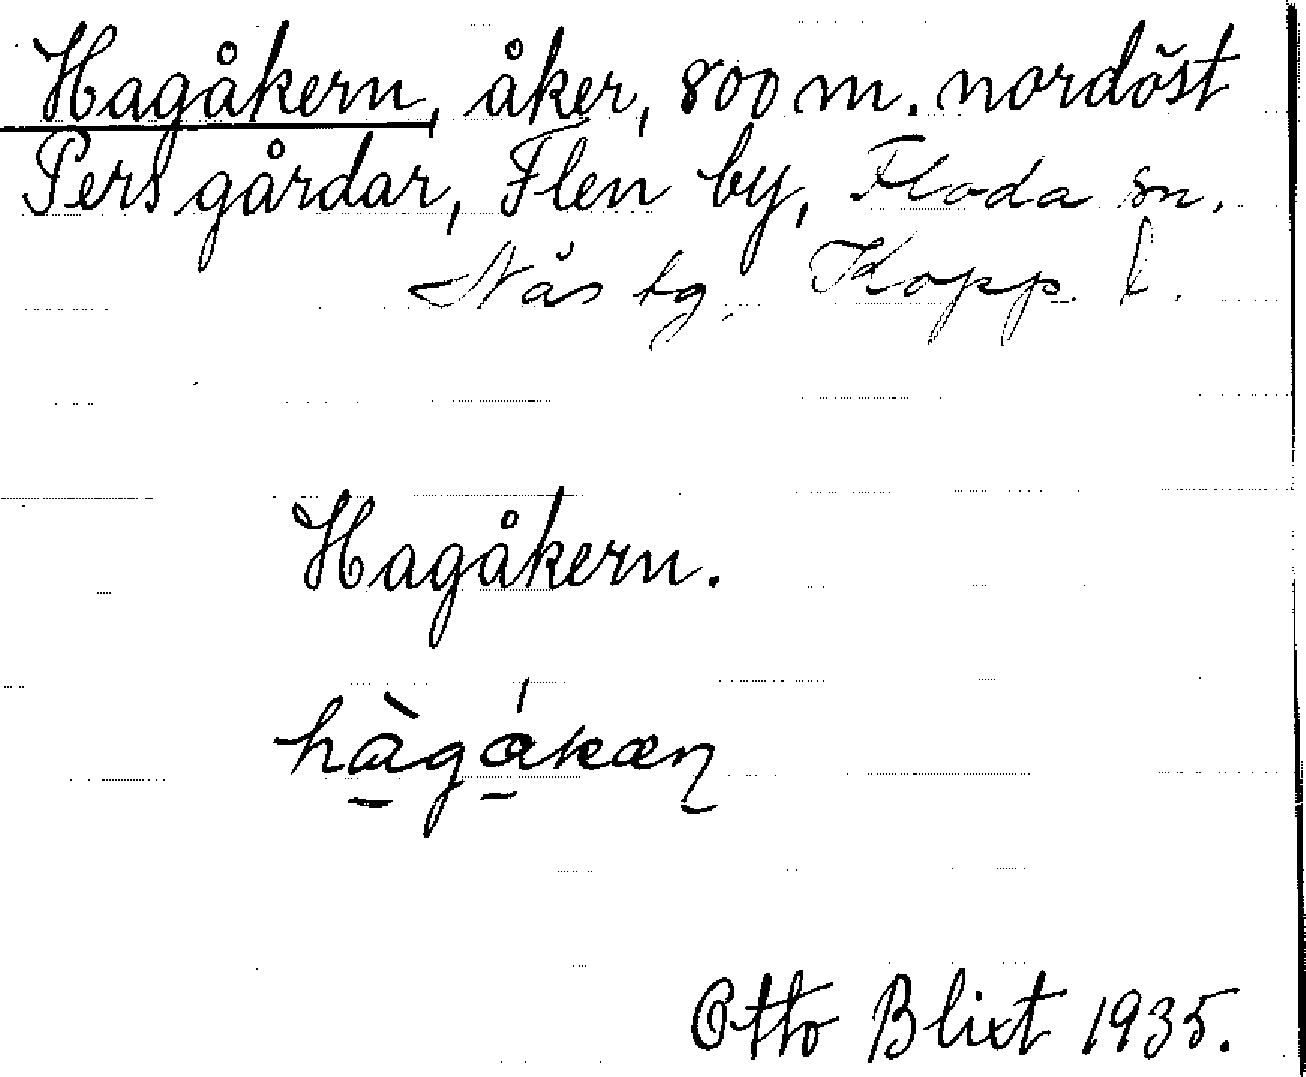 Hagåkern, åker, 800 m. nordöst
Pers gårdar, Flen by, Floda sn.
Nås tg, Kopp. l.
Hagåkern.
hàgákæn
Otto Blixt 1935.